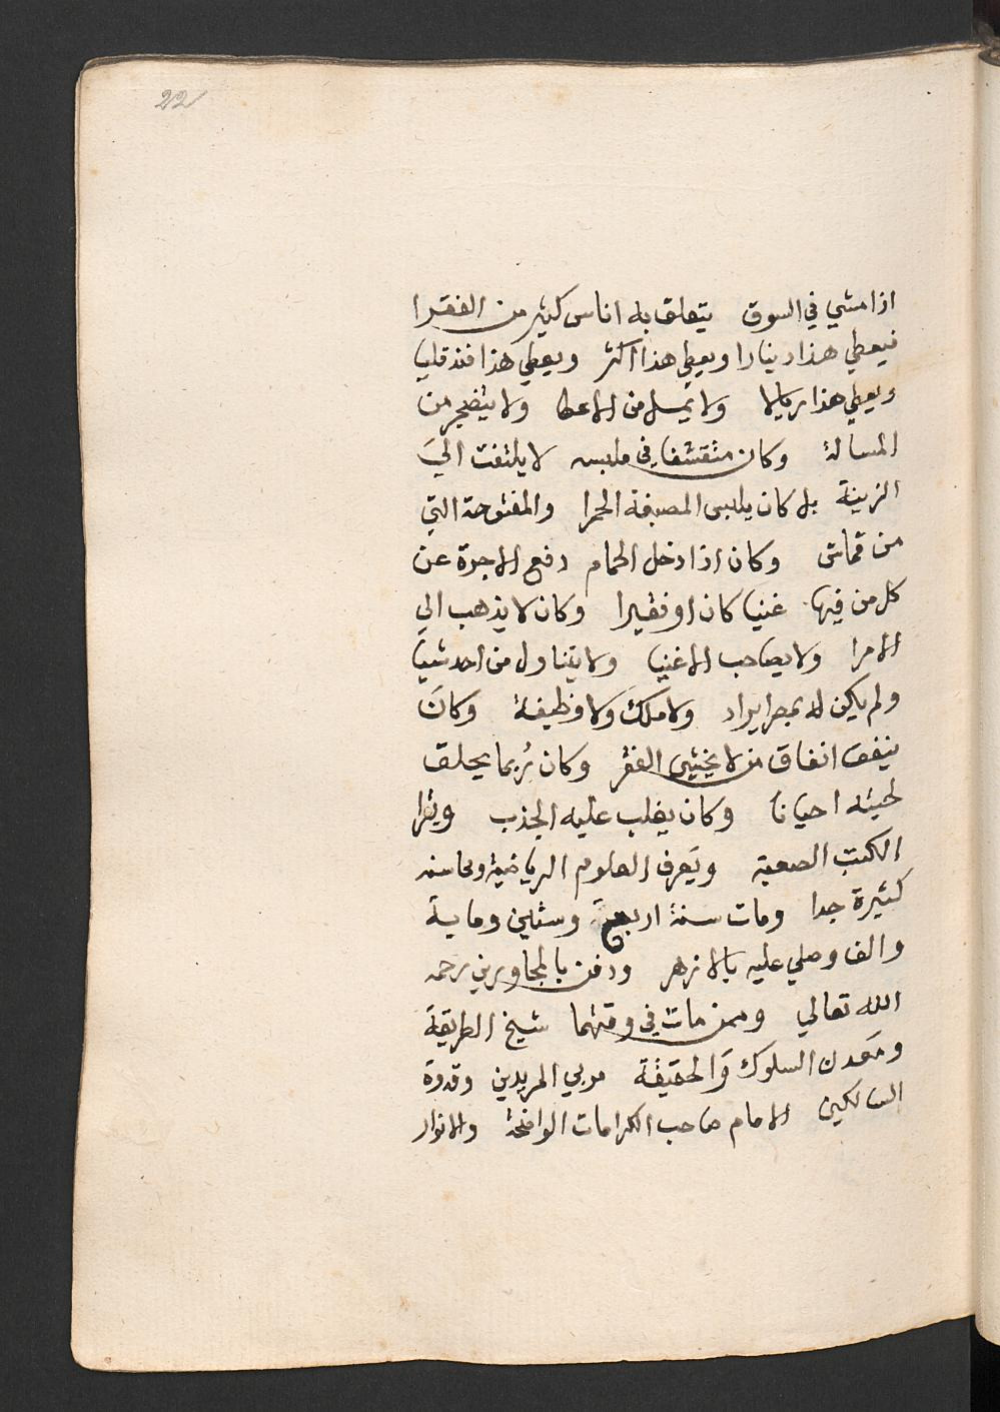 22
اذا مشي في السوق يتعلق به اناس كثير من الفقرا
فيعطي هذا دينارا ويعطي هذا اكثر ويعطي هذا فندقليا
ويعطي هذا ريالا ولا يمل من الاعطا ولا يتضجر من
المسالة وكان متقشفا في ملبسه لا يلتفت الي
الزينة بل كان يلبس المصبغة الحمرا والمفتوحة التي
من قماش وكان اذا دخل الحمام دفع الاجرة عن
كل من فيها غنيا كان او فقيرا وكان لا يذهب الي
الامرا ولا يصاحب الاغنيا ولا يتناول من احد شيا
ولم يكن له بمصر ايراد ولا ملك ولا وظيفة وكان
ينفق انفاق من لا يخشي الفقر وكان ربما يحلق
لحيته احيانا وكان يغلب عليه الجذب ويقرا
الكتب الصعبة ويعرف العلوم الرياضية ومحاسنه
كثيرة جدا ومات سنة اربعة وستين وماية
والف وصلي عليه بالازهر ودفن بالمجاورين رحمه
الله تعالي وممن مات في وقتهما شيخ الطريقة
ومعدن السلوك والحقيقة مربي المريدين وقدوة
السالكين الامام صاحب الكرامات الواضحة والانوار